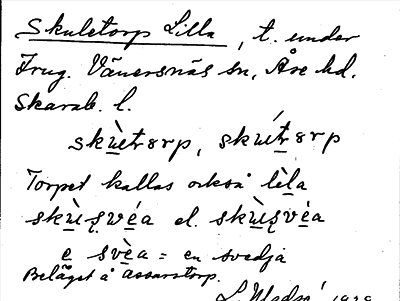 Skuletorp Lilla, t. under
Frug. Vänersnäs sn, Åse hd.
Skarab. l.
skùetrorp, skúetrorp
Torpet kallas också lèla
skùe̜svéa el. skùe̜svéa
e svèa = en svedja
Beläget å Assarstorp.